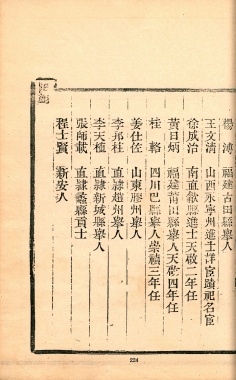 楊溥 福建古田縣舉人
王文清 山西永寧州進士詳宦蹟祀名宦
徐成治 南直歙縣進士天啟二年任
黃日炳 福建莆田縣舉人天啟四年任
桂輅 四川巴縣舉人崇禎三年任
姜仕佐 山東膠州舉人
李邦柱 直隸趙州舉人
李天植 直隸新城縣舉人
張師載 直隸蠡縣貢士
程士賢 新安人
224